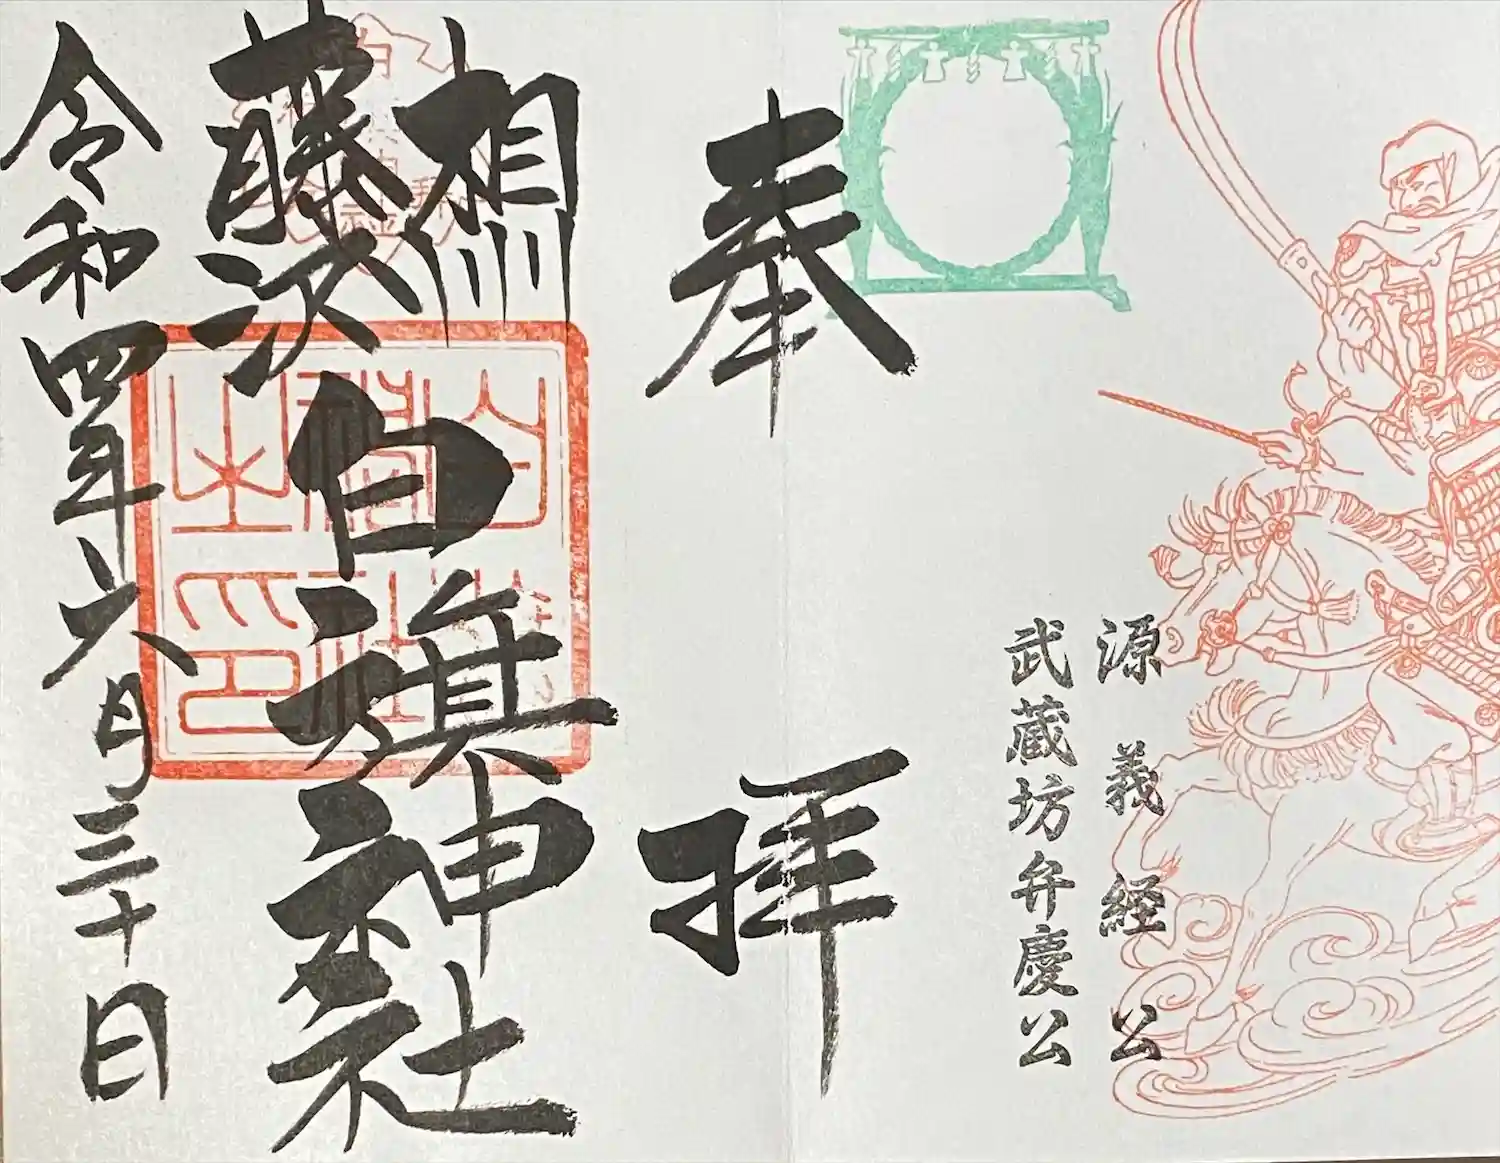 源義経公
武蔵坊弁慶公
奉拝
相州
藤沢白旗神社
白旗神社之印
令和四年六月三十日